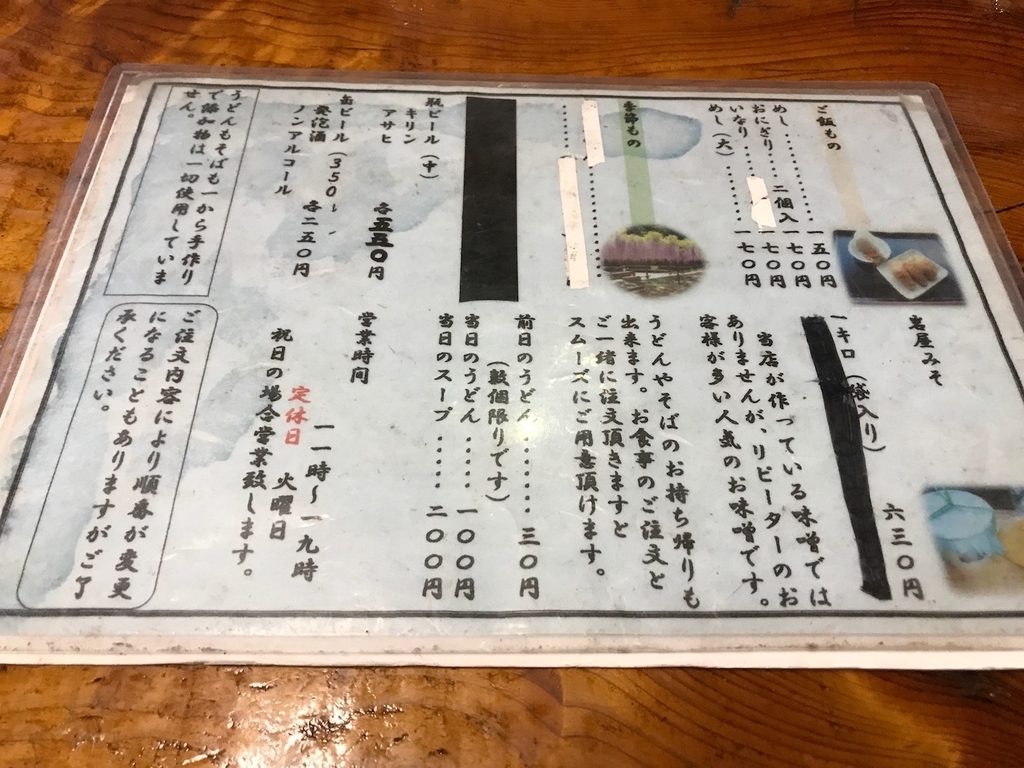 ご飯もの
めし………一五〇円
おにぎり……二個入一七〇円
いなり………一七〇円
めし（大）………一七〇円
季節もの
瓶ビール（中）
キリン
アサヒ
各五五〇円
缶ビール（350㍉
発泡酒
ノンアルコール
各二五〇円
うどんもそばも一から手作り
で添加物は一切使用していま
せん。
岩屋みそ
一キロ（袋入り）
六三〇円
当店が作っている味噌では
ありませんが、リピーターのお
客様が多い人気のお味噌です。
うどんやそばのお持ち帰りも
出来ます。お食事のご注文と
ご一緒に注文頂きますと
スムーズにご用意頂けます。
前日のうどん……三〇円
（数個限りです）
当日のうどん……一〇〇円
当日のスープ……二〇〇円
営業時間
一一時～一九時
定休日 火曜日
祝日の場合営業致します。
ご注文内容により順番が変更
になることもありますがご了
承ください。